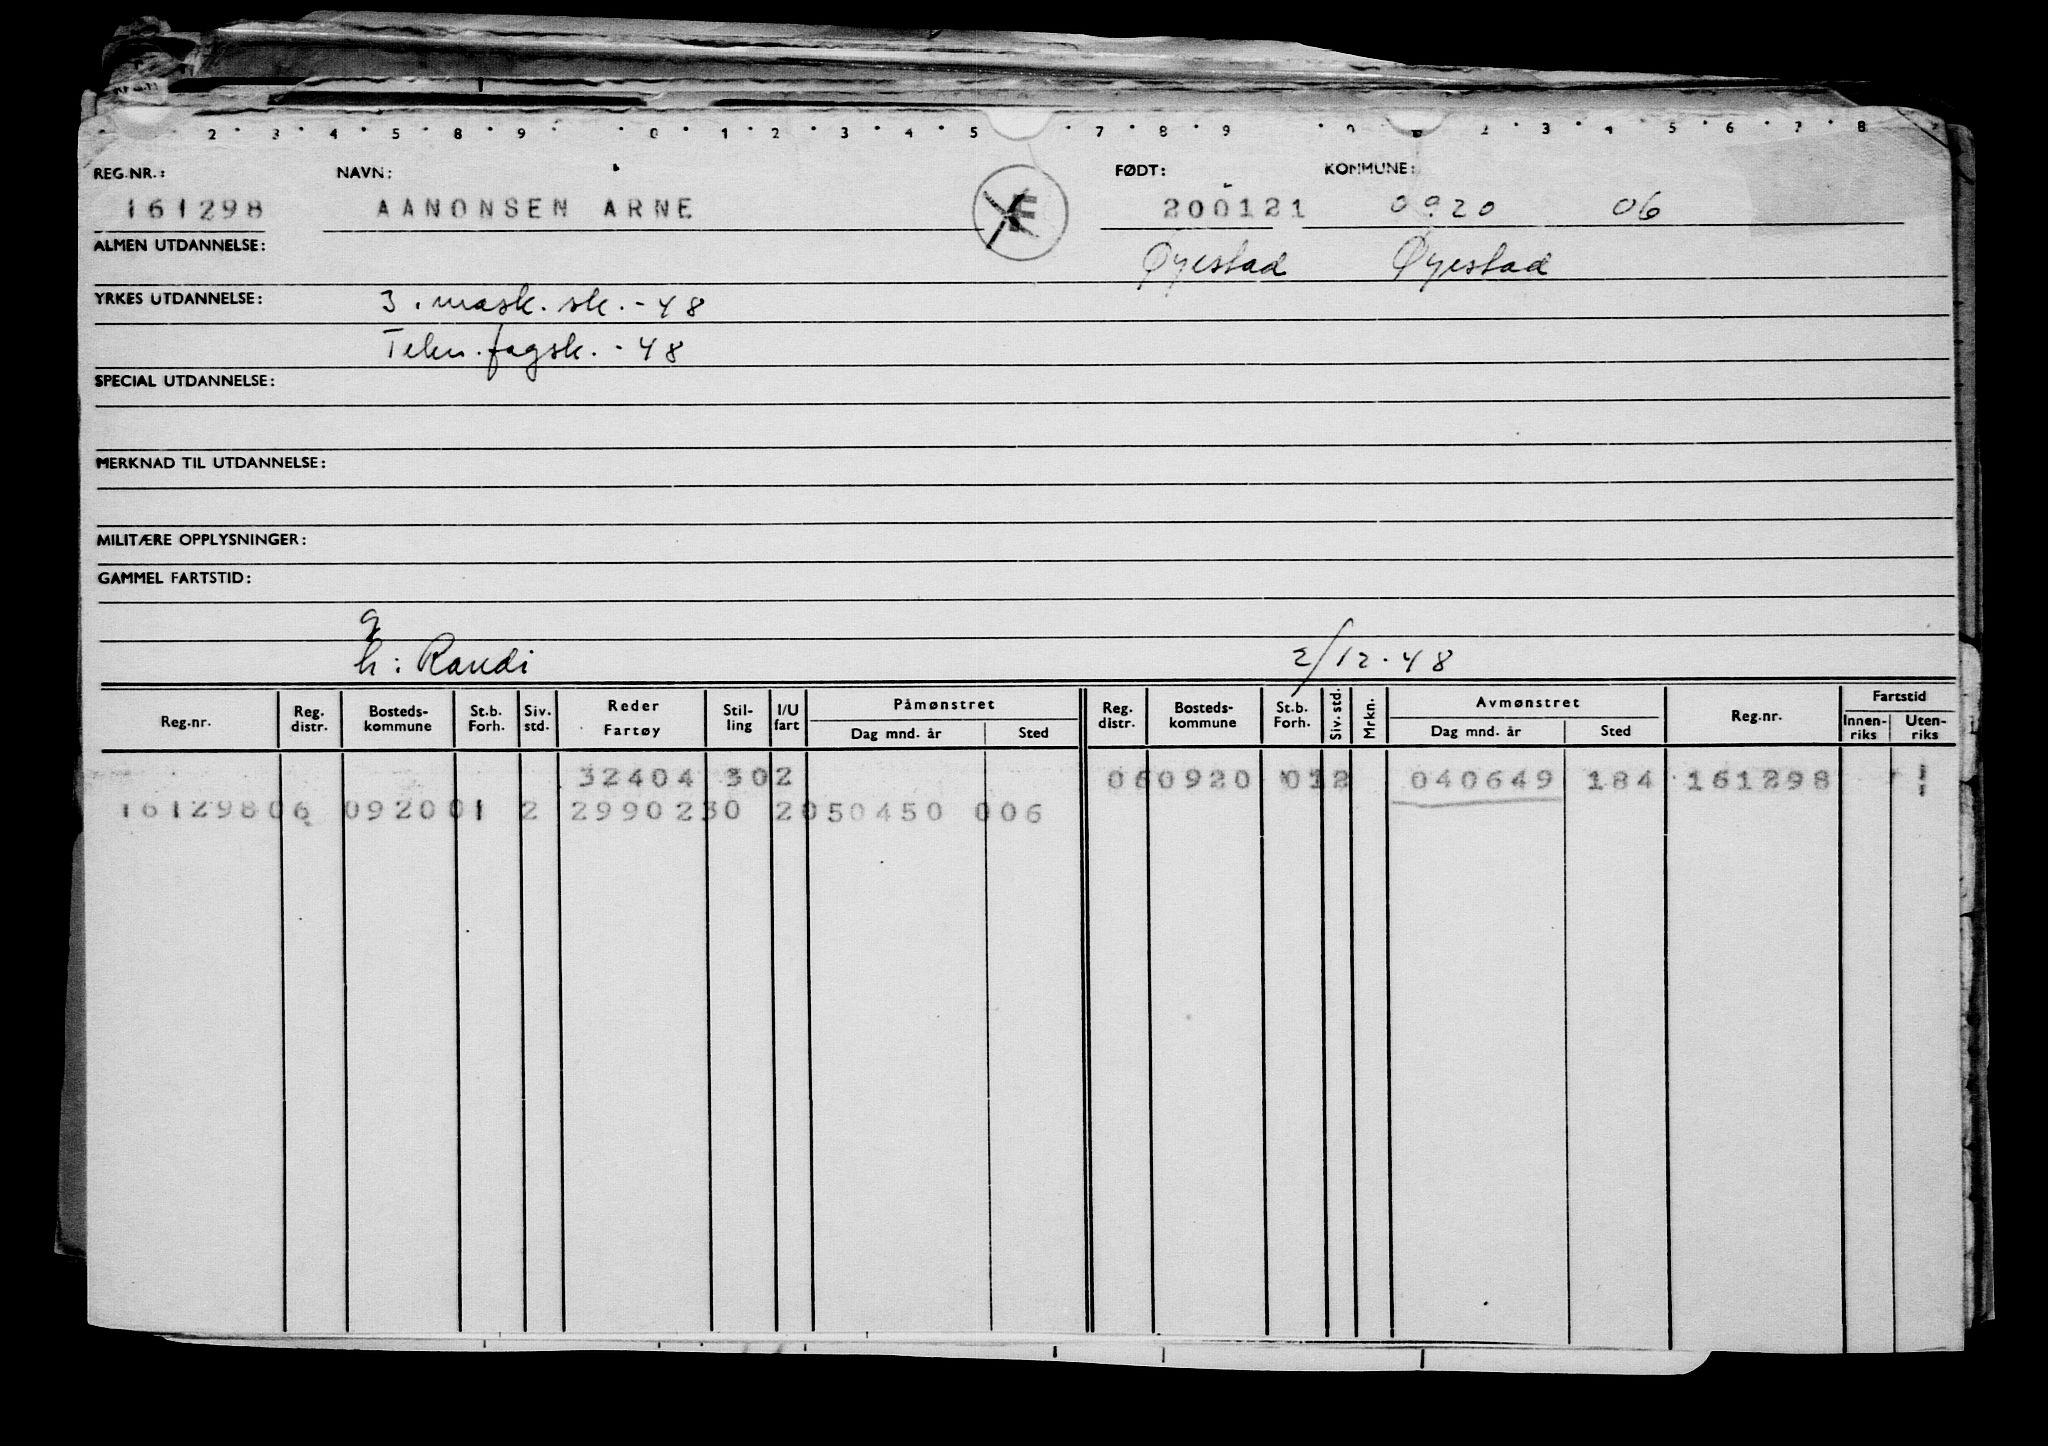 2 · 3 · 4 · 5 · 8 · 9 · · 0 · 1 · 2 · 3 · 4 · 5 · 7 · 8 · 9 · 2 · 3 · 4 · 5 · 6 · 7 · 8
REG.NR.: NAVN: FØDT: KOMMUNE:
161298 AANONSEN ARNE 200121 0920 06
ALMEN UTDANNELSE: Øyestad Øyestad
YRKES UTDANNELSE: 3. mask. sk. - 48
Tekn. fagsk. - 48
SPECIAL UTDANNELSE:
MERKNAD TIL UTDANNELSE:
MILITÆRE OPPLYSNINGER:
GAMMEL FARTSTID:
g
h: Randi 2/12.48
Reg.nr. Reg. distr. Bosteds-kommune St.b. Forh. Siv. std. Reder Fartøy Stil-ling I/U fart Påmønstret Dag mnd. år Sted Reg. distr. Bosteds-kommune St.b. Forh. Siv. std. Mrkn. Avmønstret Dag mnd. år Sted Reg.nr. Fartstid Innen-riks Uten-riks
32404 302 060920 012 040649 184 161298
16129806 092001 2 2990230 2050450 006